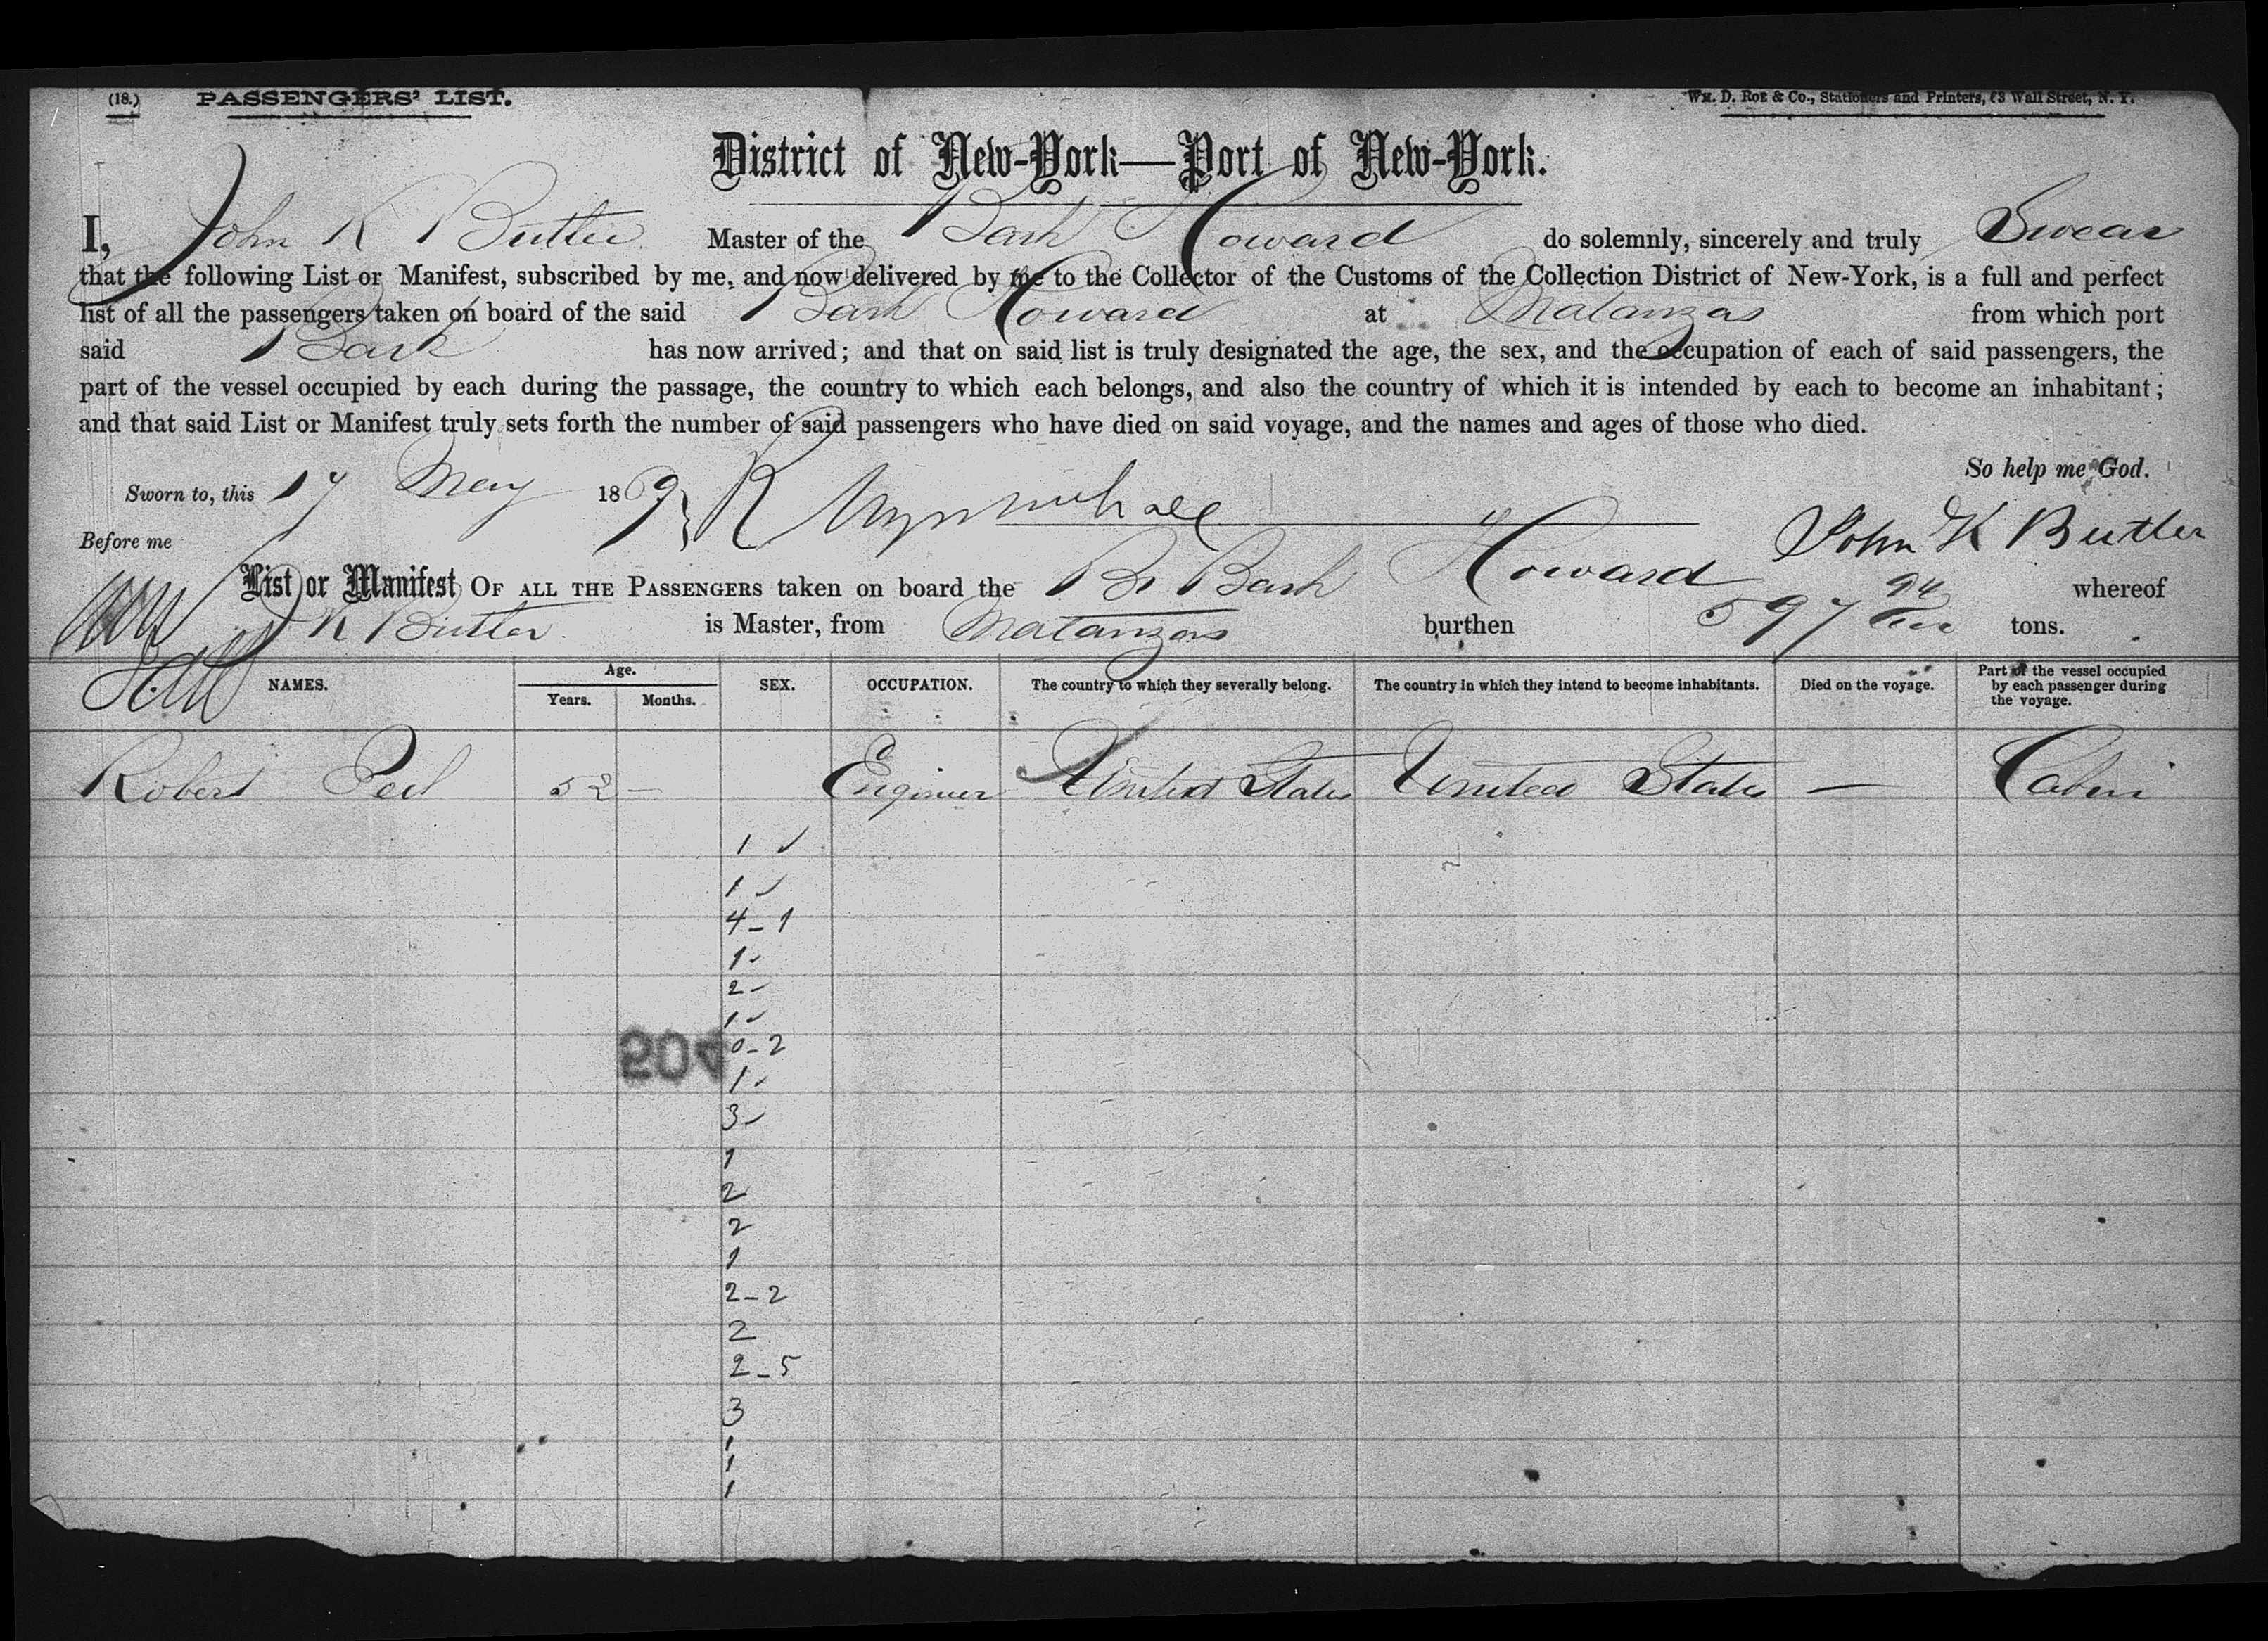 (18.) PASSENGERS' LIST. Wm. D. Roe & Co., Stationers and Printers, 63 Wall Street, N. Y.
District of New-York—Port of New-York.
I, John K Butler Master of the Bark Howard do solemnly, sincerely and truly Swear
that the following List or Manifest, subscribed by me, and now delivered by me to the Collector of the Customs of the Collection District of New-York, is a full and perfect
list of all the passengers taken on board of the said Bark Howard at Matanzas from which port
said Bark has now arrived; and that on said list is truly designated the age, the sex, and the occupation of each of said passengers, the
part of the vessel occupied by each during the passage, the country to which each belongs, and also the country of which it is intended by each to become an inhabitant;
and that said List or Manifest truly sets forth the number of said passengers who have died on said voyage, and the names and ages of those who died.
So help me God.
Sworn to, this 17 May 1869
Before me John K Butler
List or Manifest OF ALL THE PASSENGERS taken on board the Br Bark Howard whereof
J K Butler is Master, from Matanzas burthen 597 94 tons.
NAMES. Age. Years. Months. SEX. OCCUPATION. The country to which they severally belong. The country in which they intend to become inhabitants. Died on the voyage. Part of the vessel occupied by each passenger during the voyage.
Robert Peel 52 — Engineer United States United States — Cabin
1 ✓
1 ✓
4 - 1
1 ✓
2 ✓
1 ✓
204 0 - 2
1 ✓
3 ✓
1
2
2
1
2 - 2
2
2 - 5
3
1
1
1